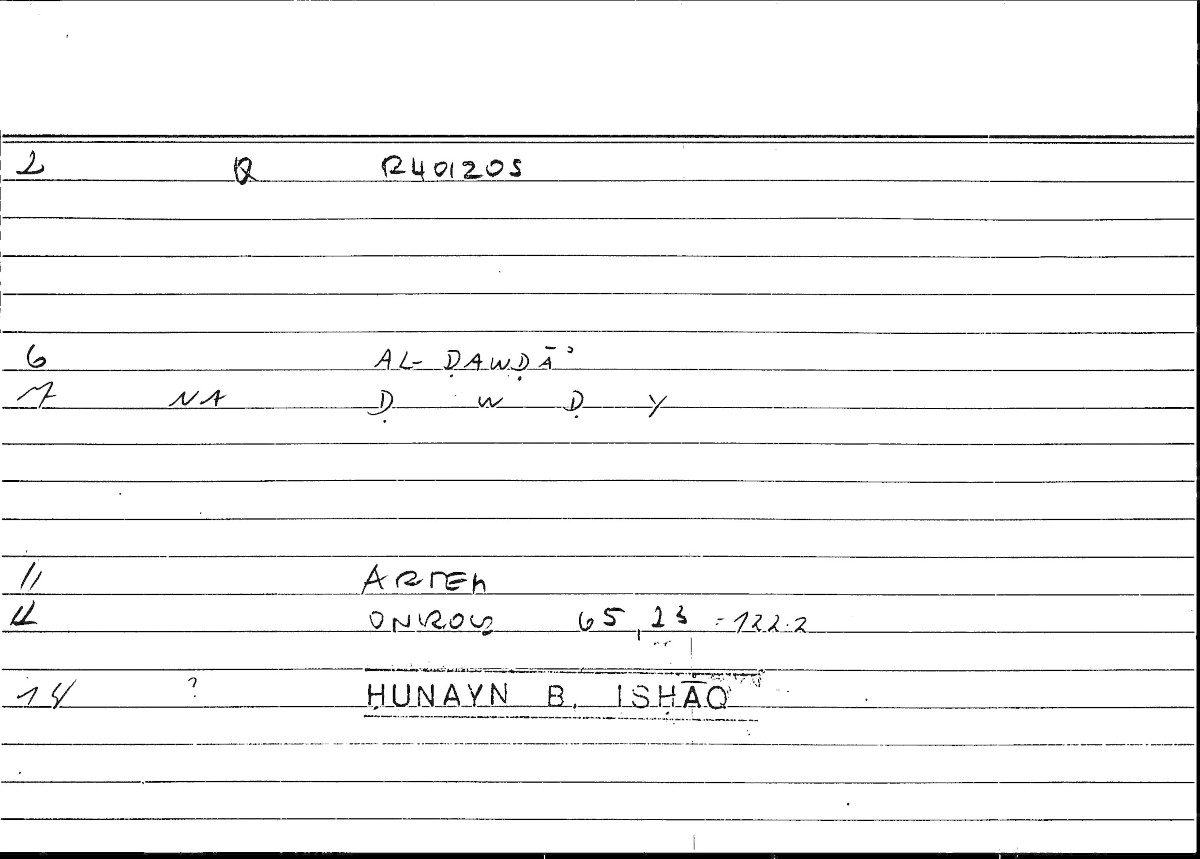 2 R R401205
6 AL-ḌAWḌĀʾ
7 NA Ḍ W Ḍ Y
11 ARTEM
12 ONIROS 65,23 = 122.2
14 ? ḤUNAYN B. ISḤĀQ